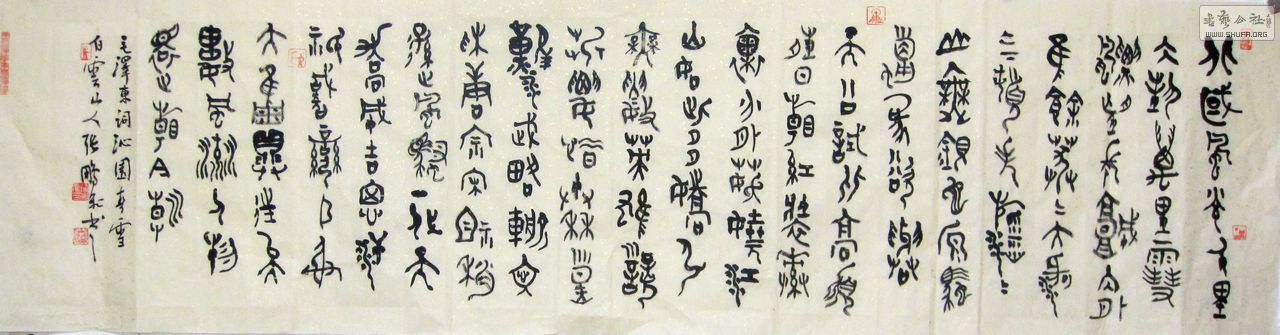 北國風光千里
冰封萬里雪
飄望長城內外
惟餘莽〻大河
上下頓失滔〻
山舞銀蛇原馳
蠟象欲與
天公試比高須
晴日看紅裝素
裹分外妖嬈江
山如此多嬌引
無數英雄競
折腰惜秦皇
漢武略輸文
采唐宗宋祖稍
遜風騷一代天
驕成吉思汗
只識彎弓射
大雕俱往矣
數風流人物
還看今朝
毛澤東詞沁園春雪
白雲山人張書
書藝公社
WWW.SHUFA.ORG